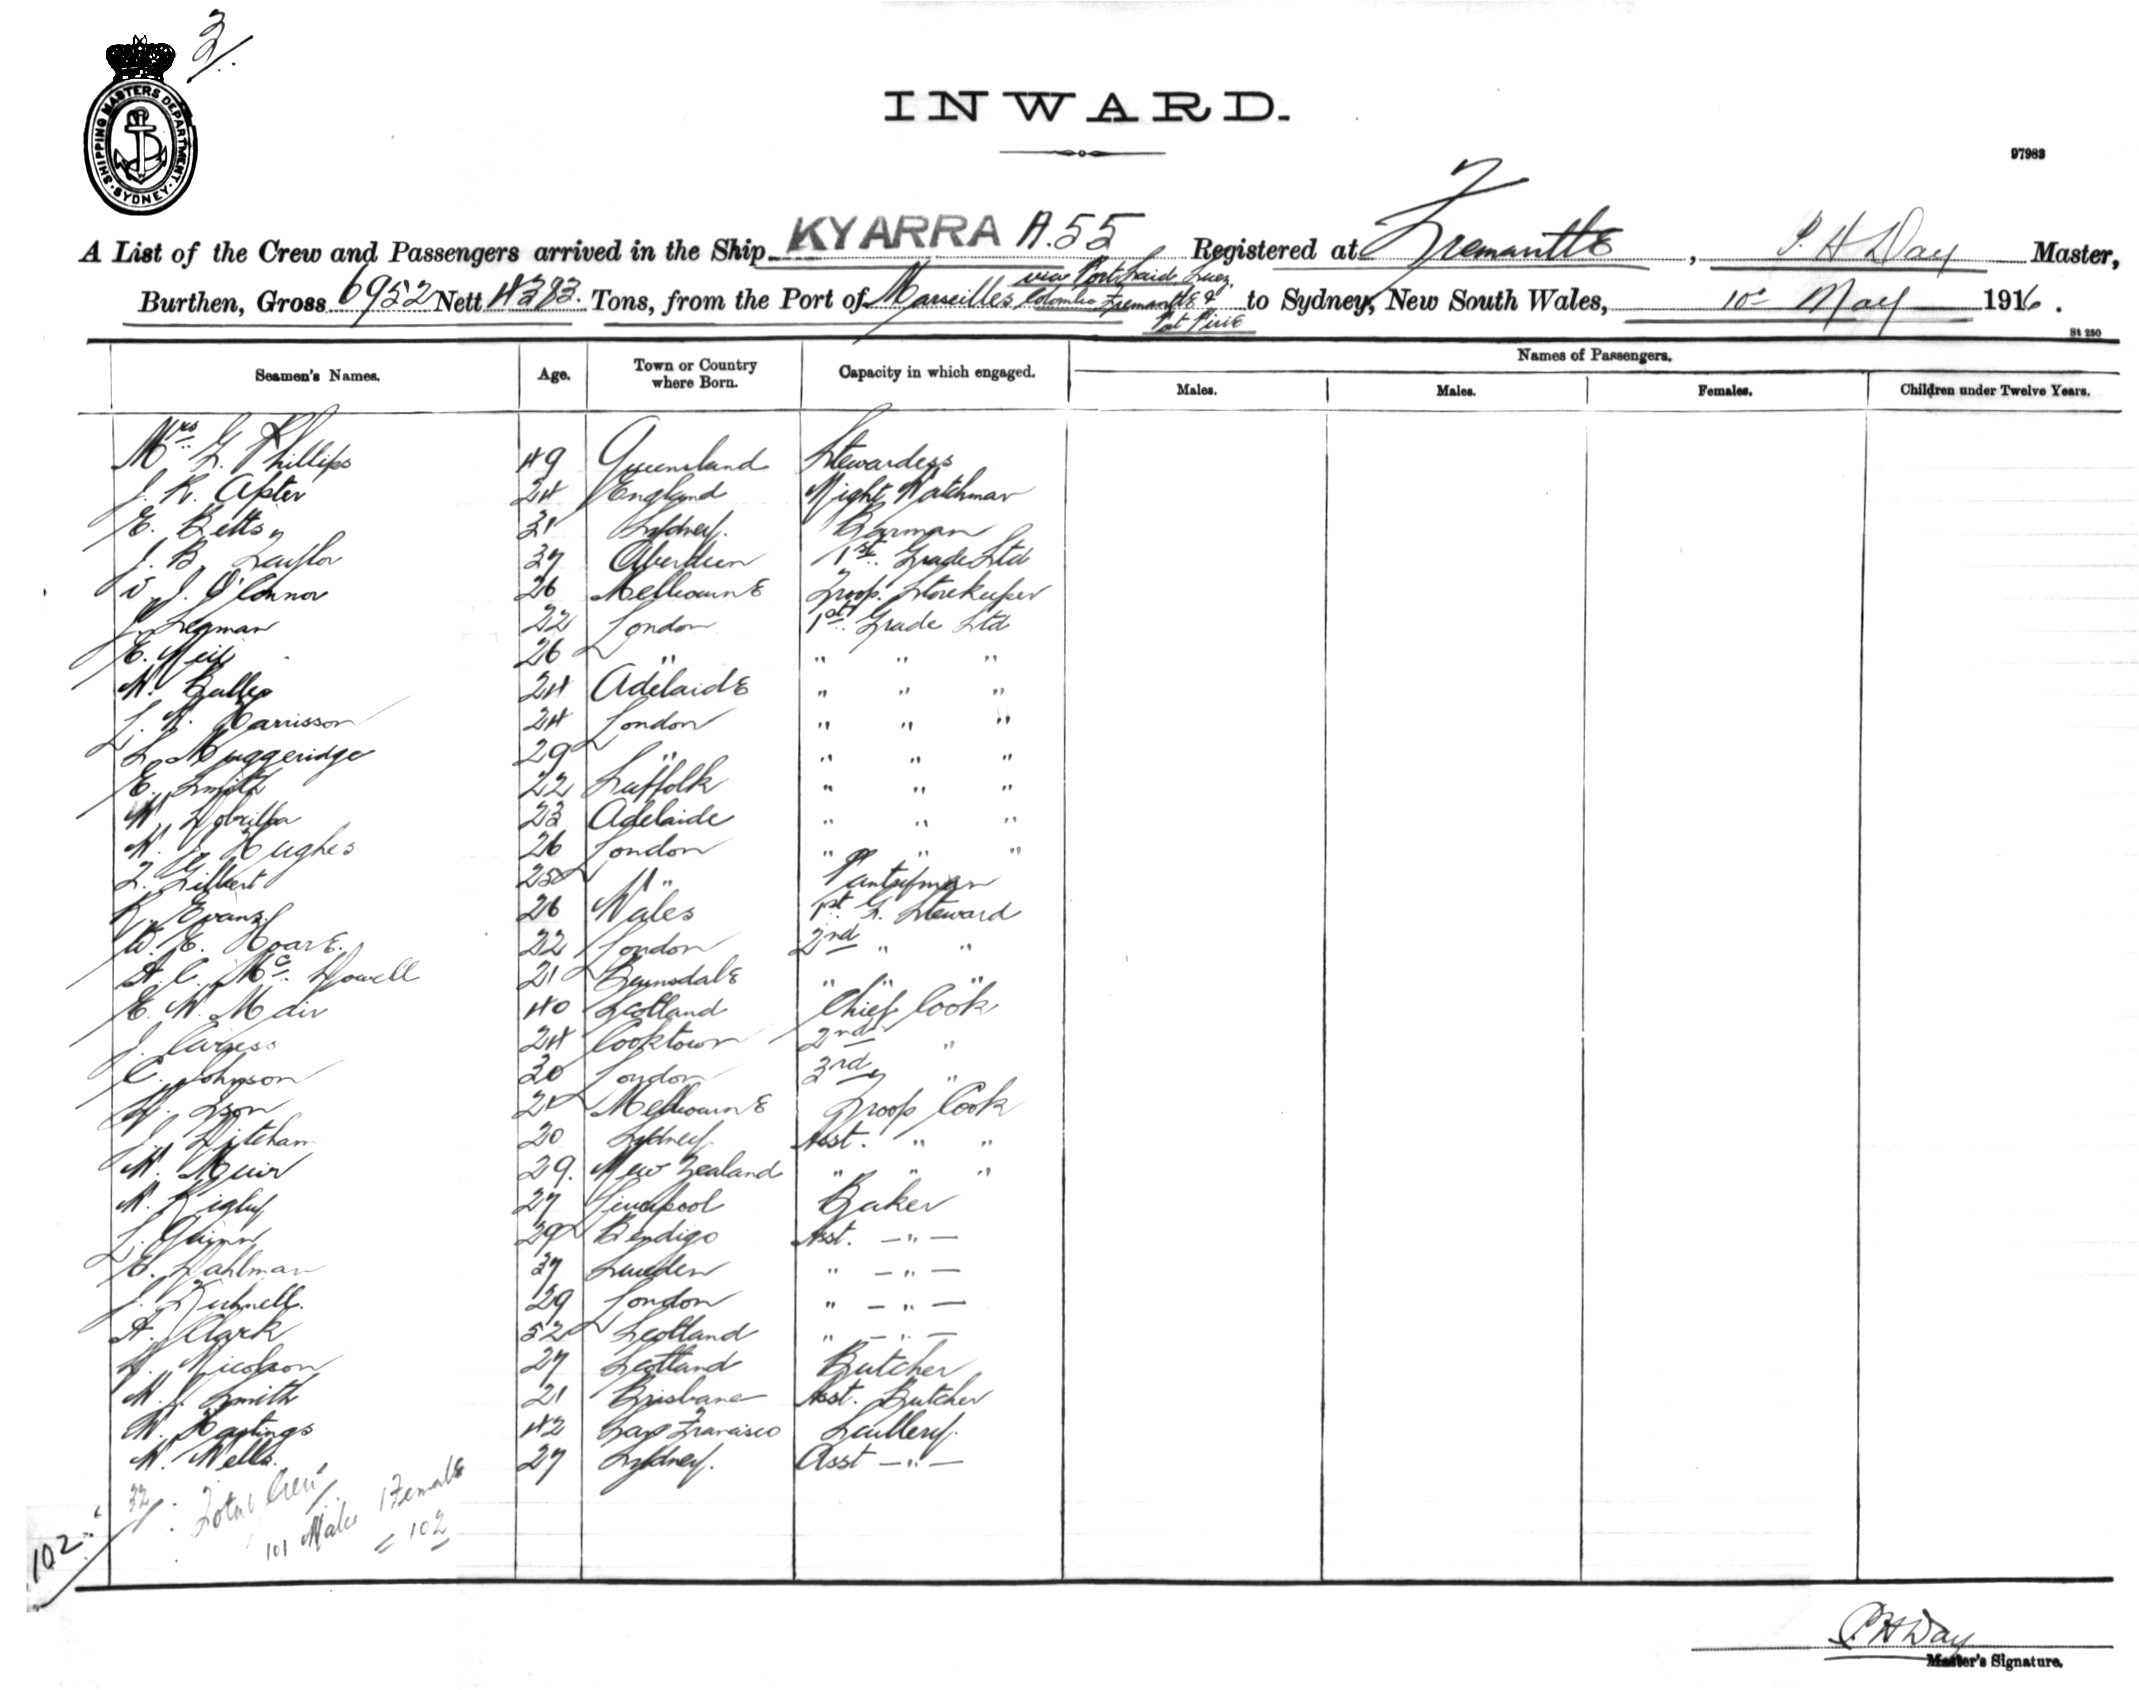 3/.
SHIPPING MASTERS DEPARTMENT. SYDNEY.
INWARD.
97983
A List of the Crew and Passengers arrived in the Ship KYARRA A.55 Registered at Fremantle, P. H Day Master,
via Port Said, Suez,
Burthen, Gross 6952 Nett 4383. Tons, from the Port of Marseilles Colombo Fremantle & to Sydney, New South Wales, 10th May 1916.
Port Pirie
St 250
Seamen's Names. Age. Town or Country where Born. Capacity in which engaged. Names of Passengers.
Males. Males. Females. Children under Twelve Years.
Mrs G. Phillips 49 Queensland Stewardess
J. R. Apter 24 England Night Watchman
E. Betts 31 Sydney. Barman
J. B. Taylor 37 Aberdeen 1st Grade Std
J. O'Connor 26 Melbourne Troop. Storekeeper
J. Legman 22 London 1st Grade Std
E. Neil 26 " " " "
W. Balles 24 Adelaide " " "
L. W. Harrisson 24 London " " "
L. Muggeridge 29 " " " "
E. Smith 22 Suffolk " " "
W. 23 Adelaide " " "
W. Hughes 26 London " " "
L. Gilbert 25 " " Pantryman
R. Evans 26 Wales 1st G. Steward
W. E. Hoare. 22 London 2nd " "
A. C. McDowell 21 Bairnsdale " " "
E. W. Mair 40 Scotland Chief Cook
J. Caress 24 Cooktown 2nd "
C. Johnson 30 London 3rd "
H. Ison 21 Melbourne Troop Cook
J. Ditcham 20 Sydney. Asst. " "
W. Muir 29. New Zealand " " "
W. Rigby 27 Liverpool Baker
L. Quinn 29 Bendigo Asst. — " —
E. Dahlman 37 Sweden " — " —
J. Kichnell. 29 London " — " —
A. Clark 52 Scotland " — " —
D. Nicolson 27 Scotland Butcher
W. J. Smith 21 Brisbane Asst. Butcher
W. Hastings 42 San Francisco Scullery.
W. Wells. 27 Sydney. Asst — " —
32/. Total Crew
101 Males 1 Female
= 102
102
P. H Day
Master's Signature.